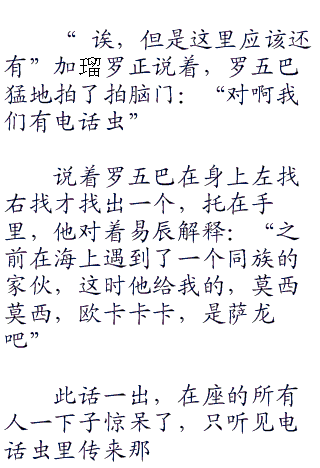 “ 诶，但是这里应该还
有”加瑠罗正说着，罗五巴
猛地拍了拍脑门：“对啊我
们有电话虫”
说着罗五巴在身上左找
右找才找出一个，托在手
里，他对着易辰解释：“之
前在海上遇到了一个同族的
家伙，这时他给我的，莫西
莫西，欧卡卡卡，是萨龙
吧”
此话一出，在座的所有
人一下子惊呆了，只听见电
话虫里传来那